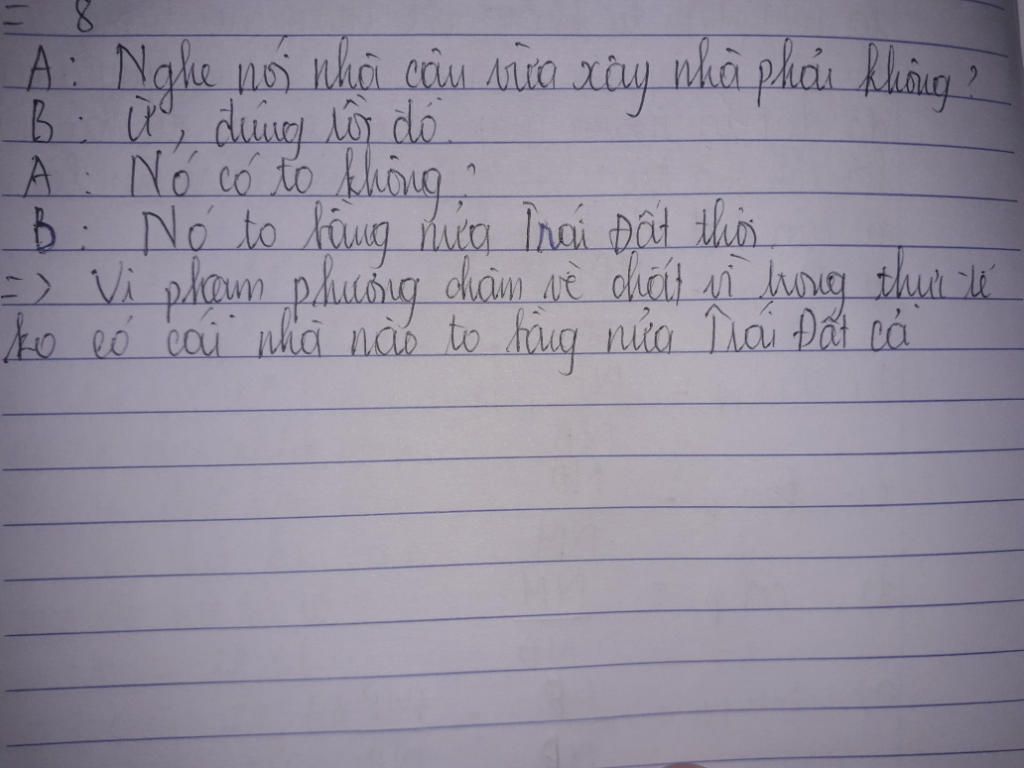 = 8
A: Nghe nói nhà cậu vừa xây nhà phải không?
B: Ừ, đúng rồi đó.
A: Nó có to không?
B: Nó to bằng nửa Trái Đất thôi
=> Vi phạm phương châm về chất vì trong thực tế
ko có cái nhà nào to bằng nửa Trái Đất cả